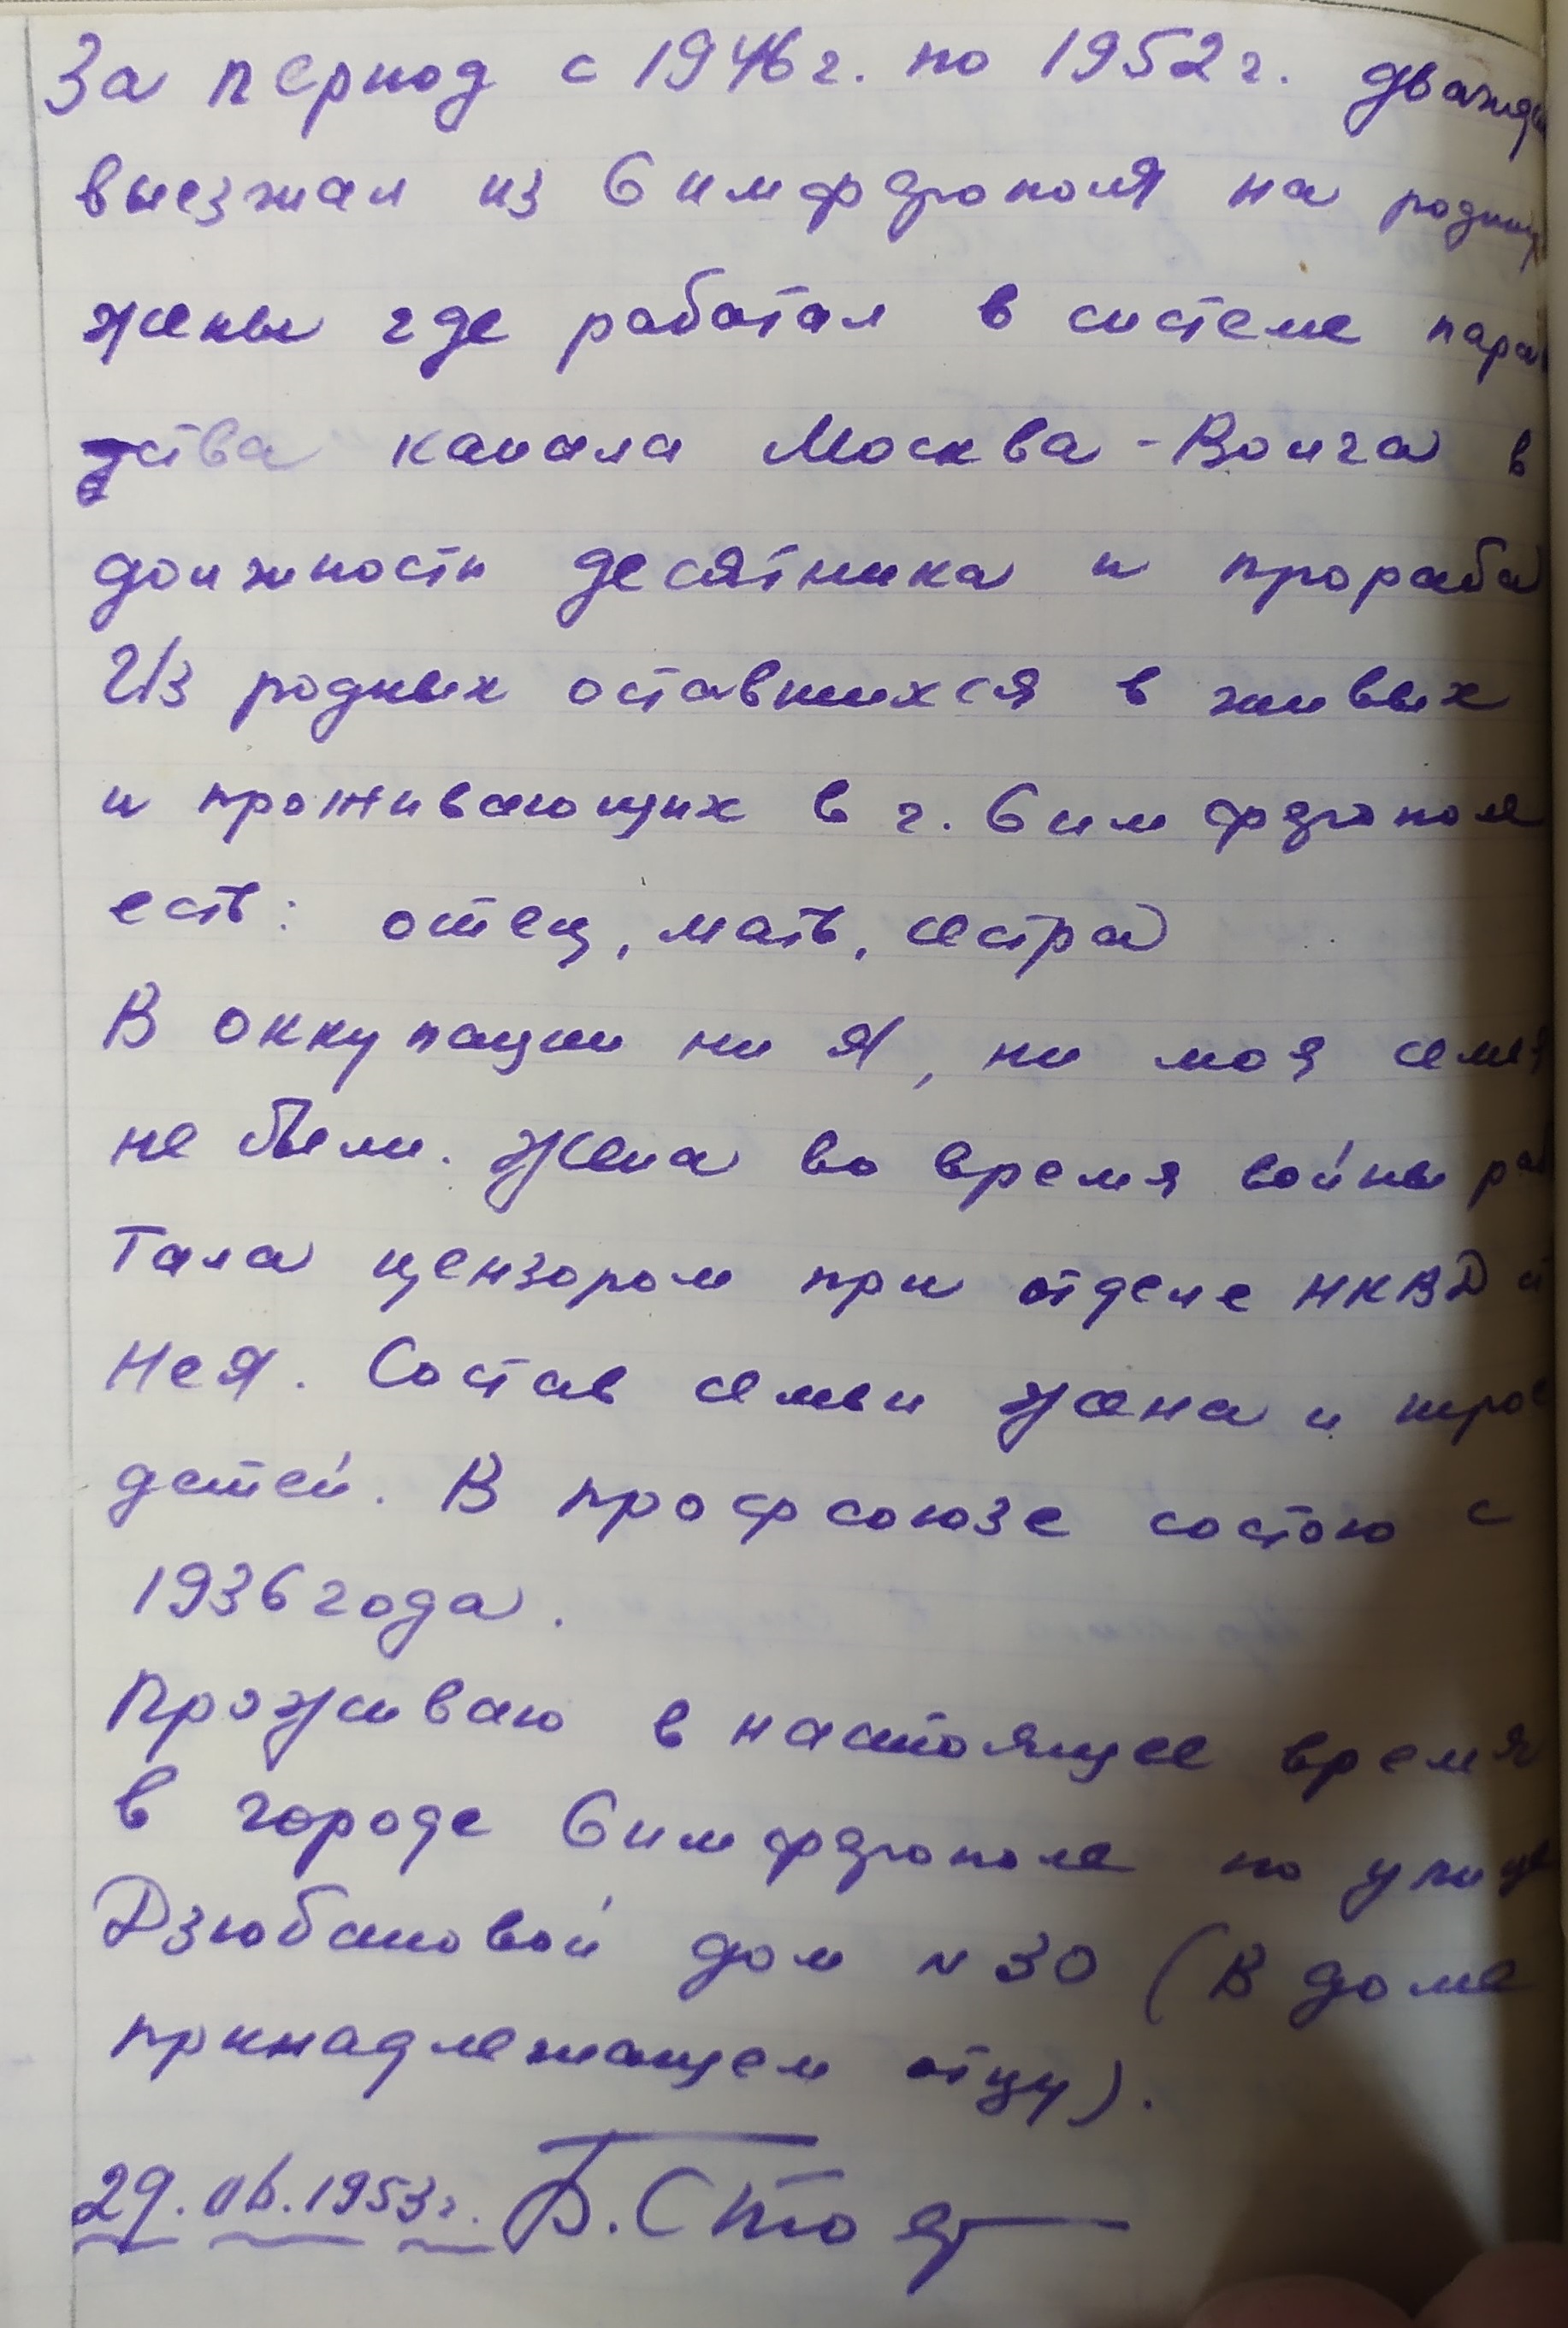 За период с 1946 г. по 1952 г. дважды
выезжал из Симферополя на родину
жены где работал в системе парох
ства канала Москва-Волга в
должности десятника и прораба
Из родных оставшихся в живых
и проживающих в г. Симферополе
есть: отец, мать, сестра
В оккупации ни я, ни моя семья
не были. Жена во время войны раб
тала цензором при отделе НКВД ст
Нея. Состав семьи жена и трое
детей. В профсоюзе состою с
1936 года.
Проживаю в настоящее время
в городе Симферополе по улице
Дзюбановой дом N 30 (В доме
принадлежащем отцу).
29. 1953 г. Б. Стоя